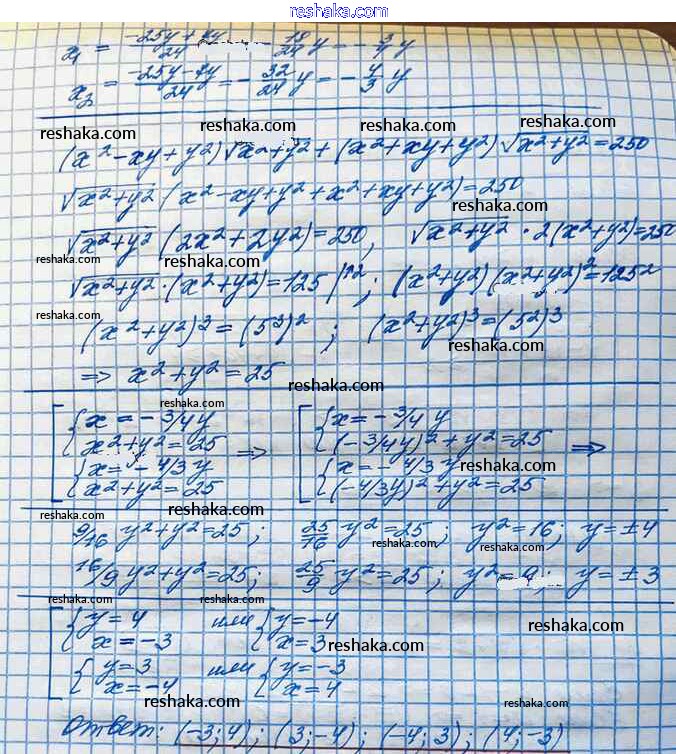 reshaka.com
x₁ = (-25y + 7y)/24 18/24 y = - 3/4 y
x₂ = (-25y - 7y)/24 = - 32/24 y = - 4/3 y
reshaka.com reshaka.com reshaka.com reshaka.com
(x² - xy + y²) √x² + y² + (x² + xy + y²) √x² + y² = 250
√x² + y² (x² - xy + y² + x² + xy + y²) = 250
reshaka.com
√x² + y² (2x² + 2y²) = 250, √x² + y² · 2(x² + y²) = 250
reshaka.com
√x² + y² · (x² + y²) = 125 |^2 ; (x² + y²)(x² + y²)² = 125²
reshaka.com
(x² + y²)³ = (5³)² ; (x² + y²)³ = (5²)³
reshaka.com
=> x² + y² = 25
reshaka.com
[ { x = - 3/4 y [ { x = - 3/4 y
x² + y² = 25 => (- 3/4 y)² + y² = 25 =>
{ x = - 4/3 y { x = - 4/3 y reshaka.com
x² + y² = 25 (- 4/3 y)² + y² = 25
reshaka.com reshaka.com reshaka.com
9/16 y² + y² = 25 ; 25/16 y² = 25 ; y² = 16 ; y = ± 4
reshaka.com
16/9 y² + y² = 25 ; 25/9 y² = 25 ; y² = 9 ; y = ± 3
reshaka.com reshaka.com
[ { y = 4 или { y = -4
x = -3 x = 3 reshaka.com reshaka.com
{ y = 3 или { y = -3
x = -4 x = 4
reshaka.com reshaka.com
Ответ: (-3; 4) ; (3; -4) ; (-4; 3) ; (4; -3)
reshaka.com